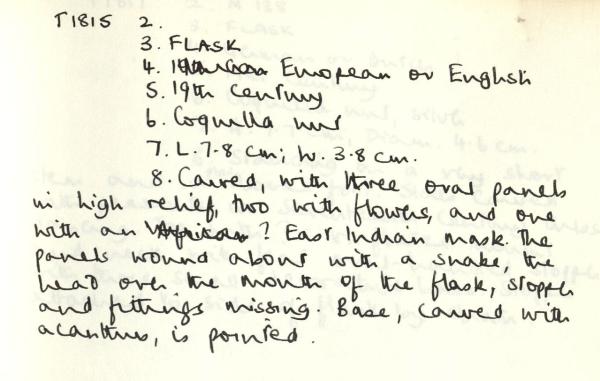 T1815 2.
3. FLASK
4. European or English
5. 19th century
6. Coquilla nut
7. L. 7.8 cm; W. 3.8 cm.
8. Carved, with three oval panels
in high relief, two with flowers, and one
with an African? East Indian mask. The
panels wound about with a snake, the
head over the mouth of the flask, stopper
and fittings missing. Base, carved with
acanthus, is pointed.